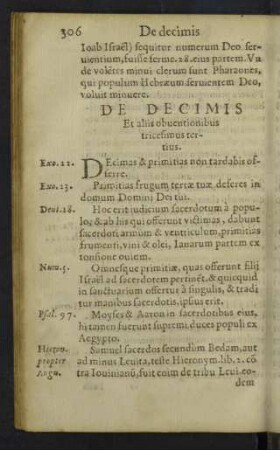 306 De decimis
Ioab Israël) sequitur numerum Deo ser-
uientium, fuisse ferme. 28. eius partem. Vn
de volẽtes minui clerum sunt Pharaones,
qui populum Hebræum seruientem Deo,
voluit minuere.
DE DECIMIS
Et aliis obuentionibus
tricesimus ter-
tius.
Exo. 22. DEcimas & primitias non tardabis of-
ferre.
Exo. 23. Primitias frugum terræ tuæ, deferes in
domum Domini Dei tui.
Deut. 18. Hoc erit iudicium sacerdotum à popu-
lo, & ab his qui offerunt victimas, dabunt
sacerdoti armum & ventriculum, primitias
frumenti, vini & olei, lanarum partem ex
tonsione ouium.
Num. 5. Omnesque primitiæ, quas offerunt filij
Israël ad sacerdotem pertinẽt, & quicquid
in sanctuarium offertur à singulis, & tradi
tur manibus sacerdotis, ipsius erit.
Psal. 97. Moyses & Aaron in sacerdotibus eius,
hi tamen fuerunt supremi duces populi ex
Aegypto.
Hieron. Samuel sacerdos secundùm Bedam, aut
propter ad minus Leuita, teste Hieronym. lib. 2. cõ
Augu. tra Iouinianũ, fuit enim de tribu Leui. eo-
dem